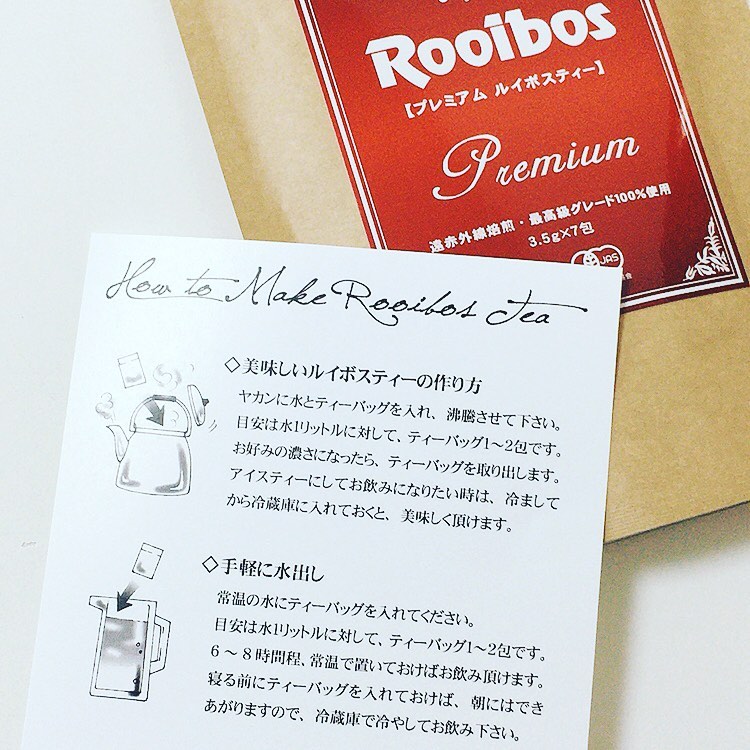 Rooibos
【プレミアム ルイボスティー】
Premium
遠赤外線焙煎・最高級グレード100%使用
3.5g×7包
JAS
How to Make Rooibos Tea
◇美味しいルイボスティーの作り方
ヤカンに水とティーバッグを入れ、沸騰させて下さい。
目安は水1リットルに対して、ティーバッグ1〜2包です。
お好みの濃さになったら、ティーバッグを取り出します。
アイスティーにしてお飲みになりたい時は、冷まして
から冷蔵庫に入れておくと、美味しく頂けます。
◇手軽に水出し
常温の水にティーバッグを入れてください。
目安は水1リットルに対して、ティーバッグ1〜2包です。
6〜8時間程、常温で置いておけばお飲み頂けます。
寝る前にティーバッグを入れておけば、朝にはでき
あがりますので、冷蔵庫で冷やしてお飲み下さい。